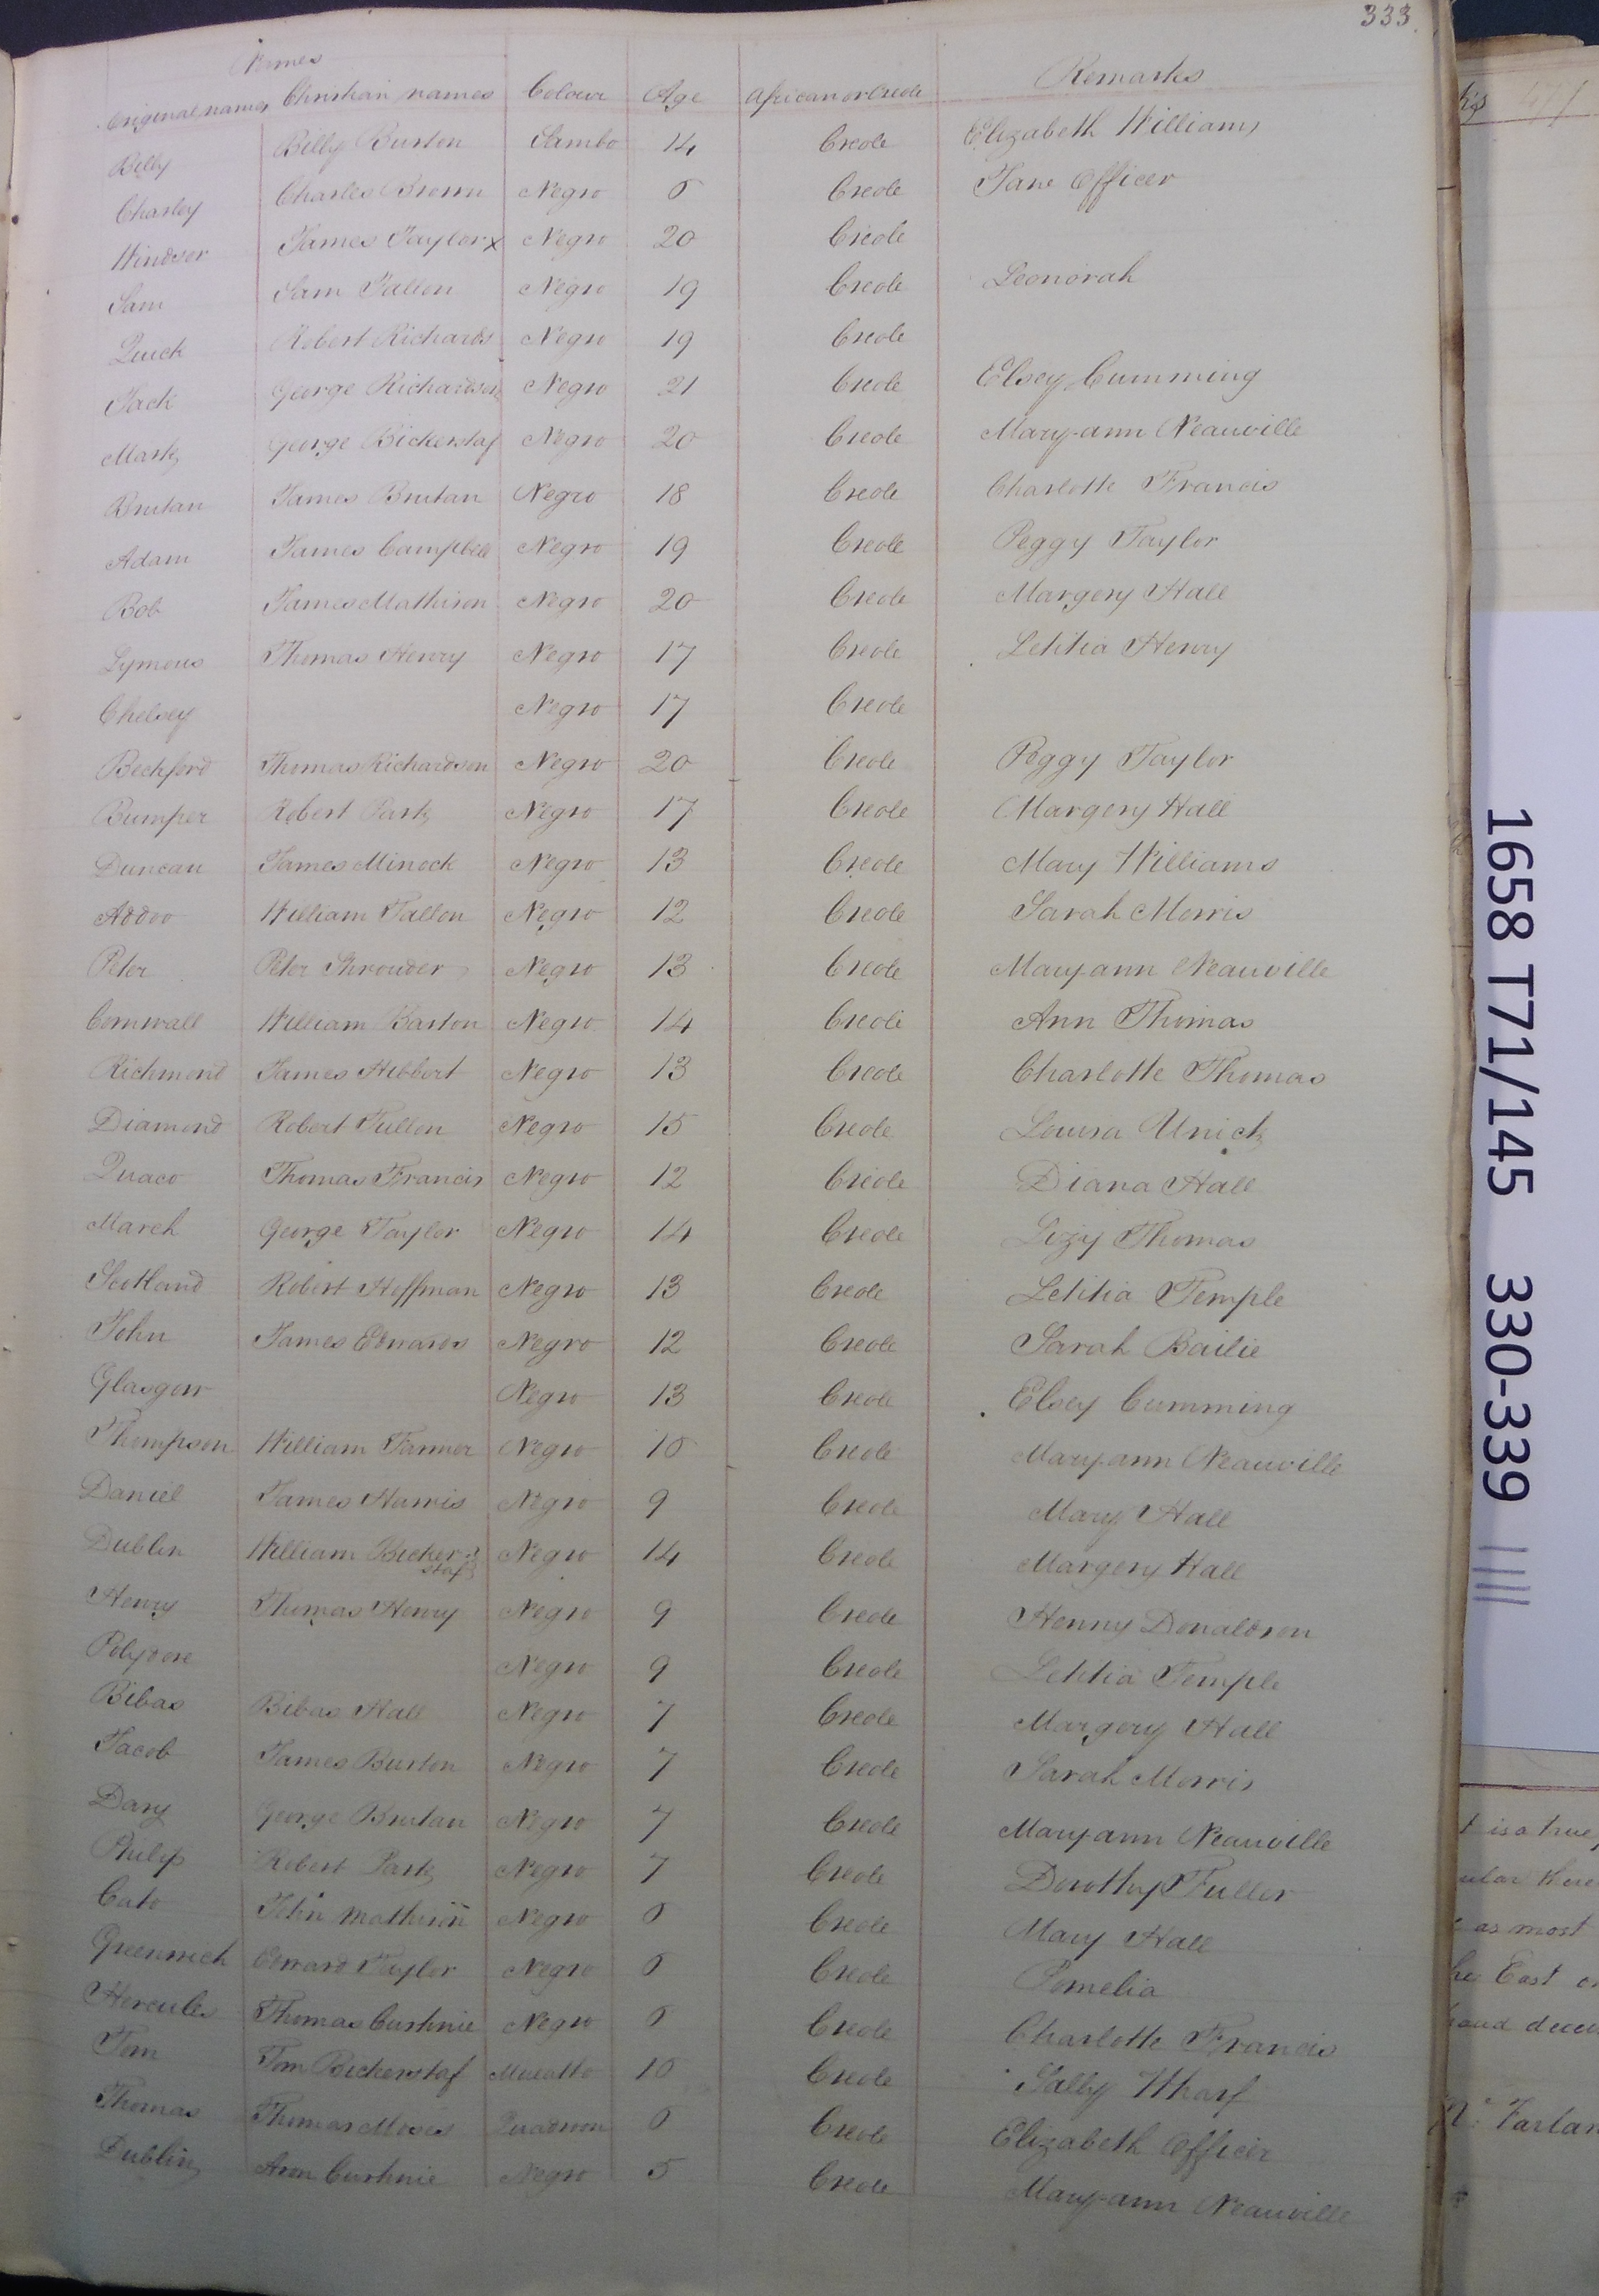 333.
Names
Original names Christian names Colour Age African or Creole Remarks
Billy Billy Burton Sambo 14 Creole Elizabeth Williams
Charley Charles Brown Negro 6 Creole Jane Officer
Windsor James Taylor x Negro 20 Creole
Sam Sam Tallon Negro 19 Creole Leonorah
Quick Robert Richards Negro 19 Creole
Jack George Richardson Negro 21 Creole Elsey Cumming
Mark George Bickerstaf Negro 20 Creole Mary-ann Neauville
Brutan James Brutan Negro 18 Creole Charlotte Francis
Adam James Campbell Negro 19 Creole Peggy Taylor
Bob James Mathison Negro 20 Creole Margery Hall
Lymeus Thomas Henry Negro 17 Creole Letitia Henry
Chelsey Negro 17 Creole
Beckford Thomas Richardson Negro 20 Creole Peggy Taylor
Bumper Robert Park Negro 17 Creole Margery Hall
Duncan James Minock Negro 13 Creole Mary Williams
Addoo William Tallon Negro 12 Creole Sarah Morris
Peter Peter Shrouder Negro 13 Creole Maryann Neauville
Cornwall William Barton Negro 14 Creole Ann Thomas
Richmond James Hibbert Negro 13 Creole Charlotte Thomas
Diamond Robert Tullon Negro 15 Creole Louisa Unick
Quaco Thomas Francis Negro 12 Creole Diana Hall
March George Taylor Negro 14 Creole Lizy Thomas
Scotland Robert Hoffman Negro 13 Creole Letitia Temple
John James Edwards Negro 12 Creole Sarah Bailie
Glasgow Negro 13 Creole Elsey Cumming
Thompson William Farmer Negro 10 Creole Mary-ann Neauville
Daniel James Harris Negro 9 Creole Mary Hall
Dublin William Bicker- Negro 14 Creole Margery Hall
staf
Henry Thomas Henry Negro 9 Creole Henny Donaldson
Polydore Negro 9 Creole Letitia Temple
Bibas Bibas Hall Negro 7 Creole Margery Hall
Jacob James Burton Negro 7 Creole Sarah Morris
Davy George Brutan Negro 7 Creole Mary-ann Neauville
Philip Robert Park Negro 7 Creole Dorothy Fuller
Cato John Mathison Negro 6 Creole Mary Hall
Greenwich Edward Taylor Negro 6 Creole Pamelia
Hercules Thomas Cushnie Negro 6 Creole Charlotte Francis
Tom Tom Bickerstaf Mulatto 10 Creole Sally Wharf
Thomas Thomas Moses Quadroon 6 Creole Elizabeth Officer
Dublin Aron Cushnie Negro 5 Creole Mary-ann Neauville
1658 T71/145 330-339
is a true
as most
East